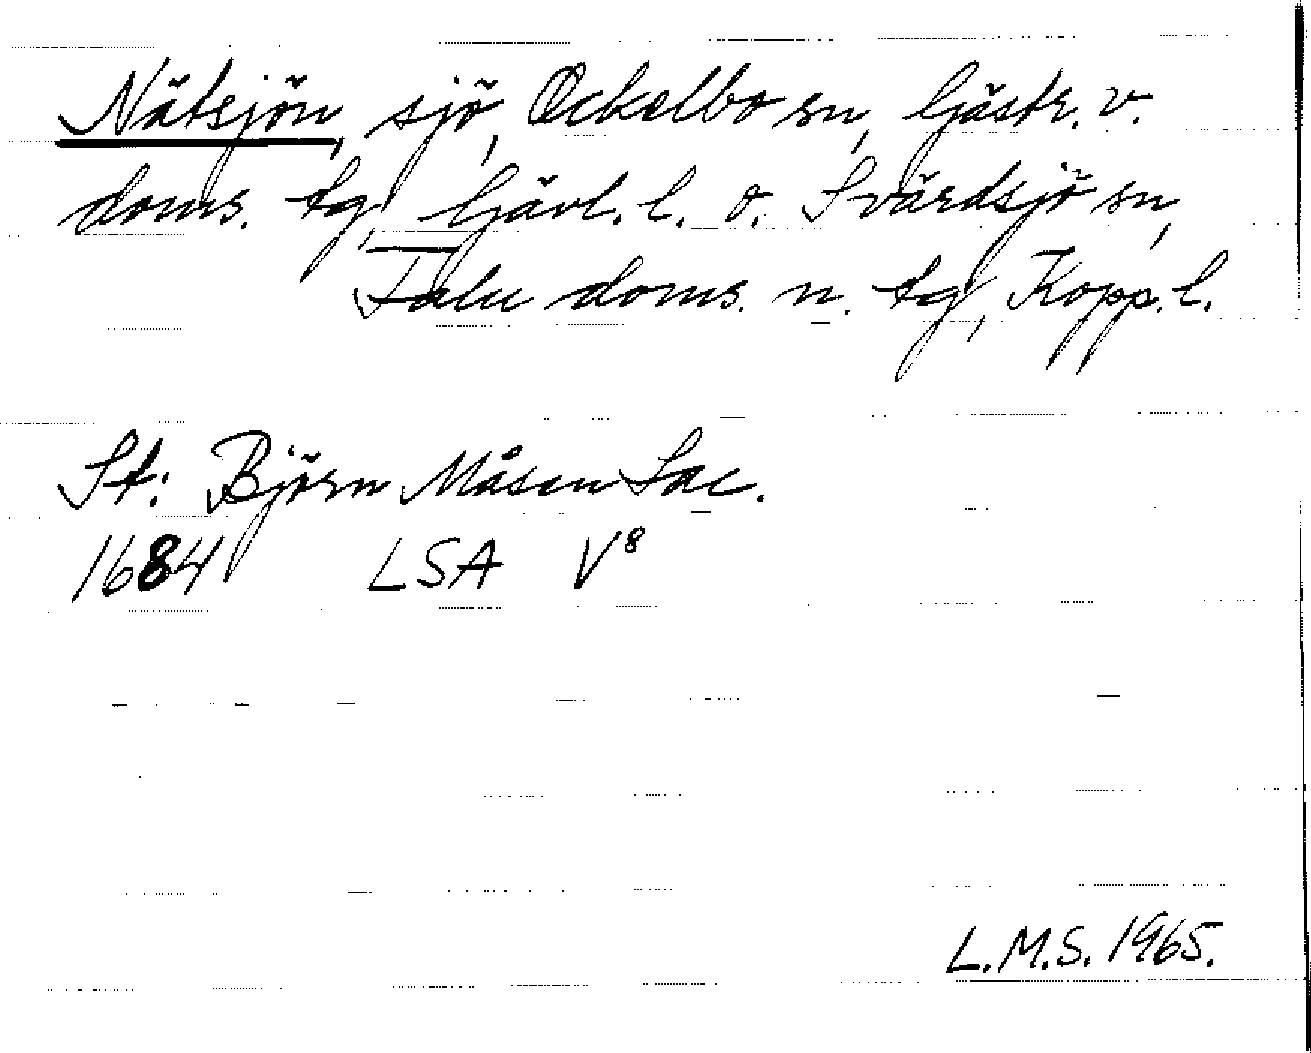 Nätsjön, sjö, Ockelbo sn, Gästr. v.
doms. tg, Gävl. l. o. Svärdsjö sn,
Falu doms. n. tg, Kopp. l.
St: Björn Måsen Sac.
1684 LSA V⁸
L.M.S. 1965.